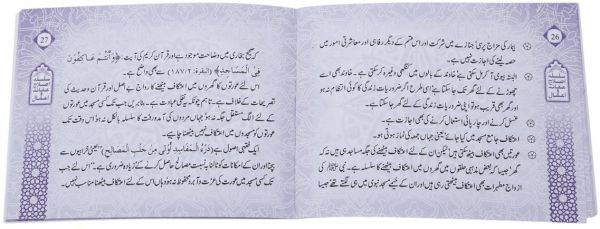 26
بیمار کی مزاج پرسی، جنازے میں شرکت اور اس قسم کے دیگر رفاہی اور معاشرتی امور میں
حصہ لینے کی اجازت نہیں ہے۔
البتہ بیوی آ کر مل سکتی ہے، خاوند کے بالوں میں کنگھی وغیرہ کر سکتی ہے۔ خاوند بھی اسے
چھوڑنے کے لئے گھر تک جا سکتا ہے، اسی طرح اگر ضروریات زندگی کا کوئی انتظام نہ ہو
اور گھر بھی قریب ہو تو اپنی ضروریات زندگی کے لئے گھر جا سکتا ہے۔
غسل کرنے اور چارپائی استعمال کرنے کی بھی اجازت ہے۔
اعتکاف جامع مسجد میں کیا جائے، یعنی جہاں جمعہ کی نماز ہوتی ہو۔
عورتیں بھی اعتکاف بیٹھ سکتی ہیں لیکن ان کے لئے اعتکاف بیٹھنے کی جگہ مساجد ہی ہیں نہ کہ
گھر، جیسا کہ بعض مذہبی حلقوں میں گھروں میں اعتکاف بیٹھنے کا سلسلہ ہے۔ نبی ﷺ کی
ازواج مطہرات بھی اعتکاف بیٹھتی رہی ہیں اور ان کے خیمے مسجد نبوی میں ہی لگتے تھے جیسا
27
کہ صحیح بخاری میں وضاحت موجود ہے اور قرآن کریم کی آیت: ﴿وَأَنْتُمْ عَاكِفُونَ
فِي الْمَسَاجِدِ﴾ (البقرة: ۱۸۷/۲) سے بھی واضح ہے۔
اس لئے عورتوں کا گھروں میں اعتکاف بیٹھنے کا رواج بے اصل اور قرآن و حدیث کی
تصریحات کے خلاف ہے۔ تاہم چونکہ یہ نفلی عبادت ہے، بنا بریں جب تک کسی مسجد میں عورتوں
کے لئے الگ مستقل جگہ نہ ہو، جہاں مردوں کی آمد و رفت کا سلسلہ بالکل نہ ہو، اس وقت تک
عورتوں کو مسجدوں میں اعتکاف نہیں بیٹھنا چاہیے۔
ایک فقہی اصول ہے (دَرْءُ الْمَفَاسِدِ أَوْلَى مِنْ جَلْبِ الْمَصَالِحِ) "یعنی خرابیوں سے
بچنا اور ان کے امکانات کو ٹالنا بہ نسبت مصالح حاصل کرنے کے زیادہ ضروری ہے۔" اس لئے جب
تک کسی مسجد میں عورت کی عزت و آبرو محفوظ نہ ہو وہاں اس کے لئے اعتکاف بیٹھنا مناسب نہیں۔